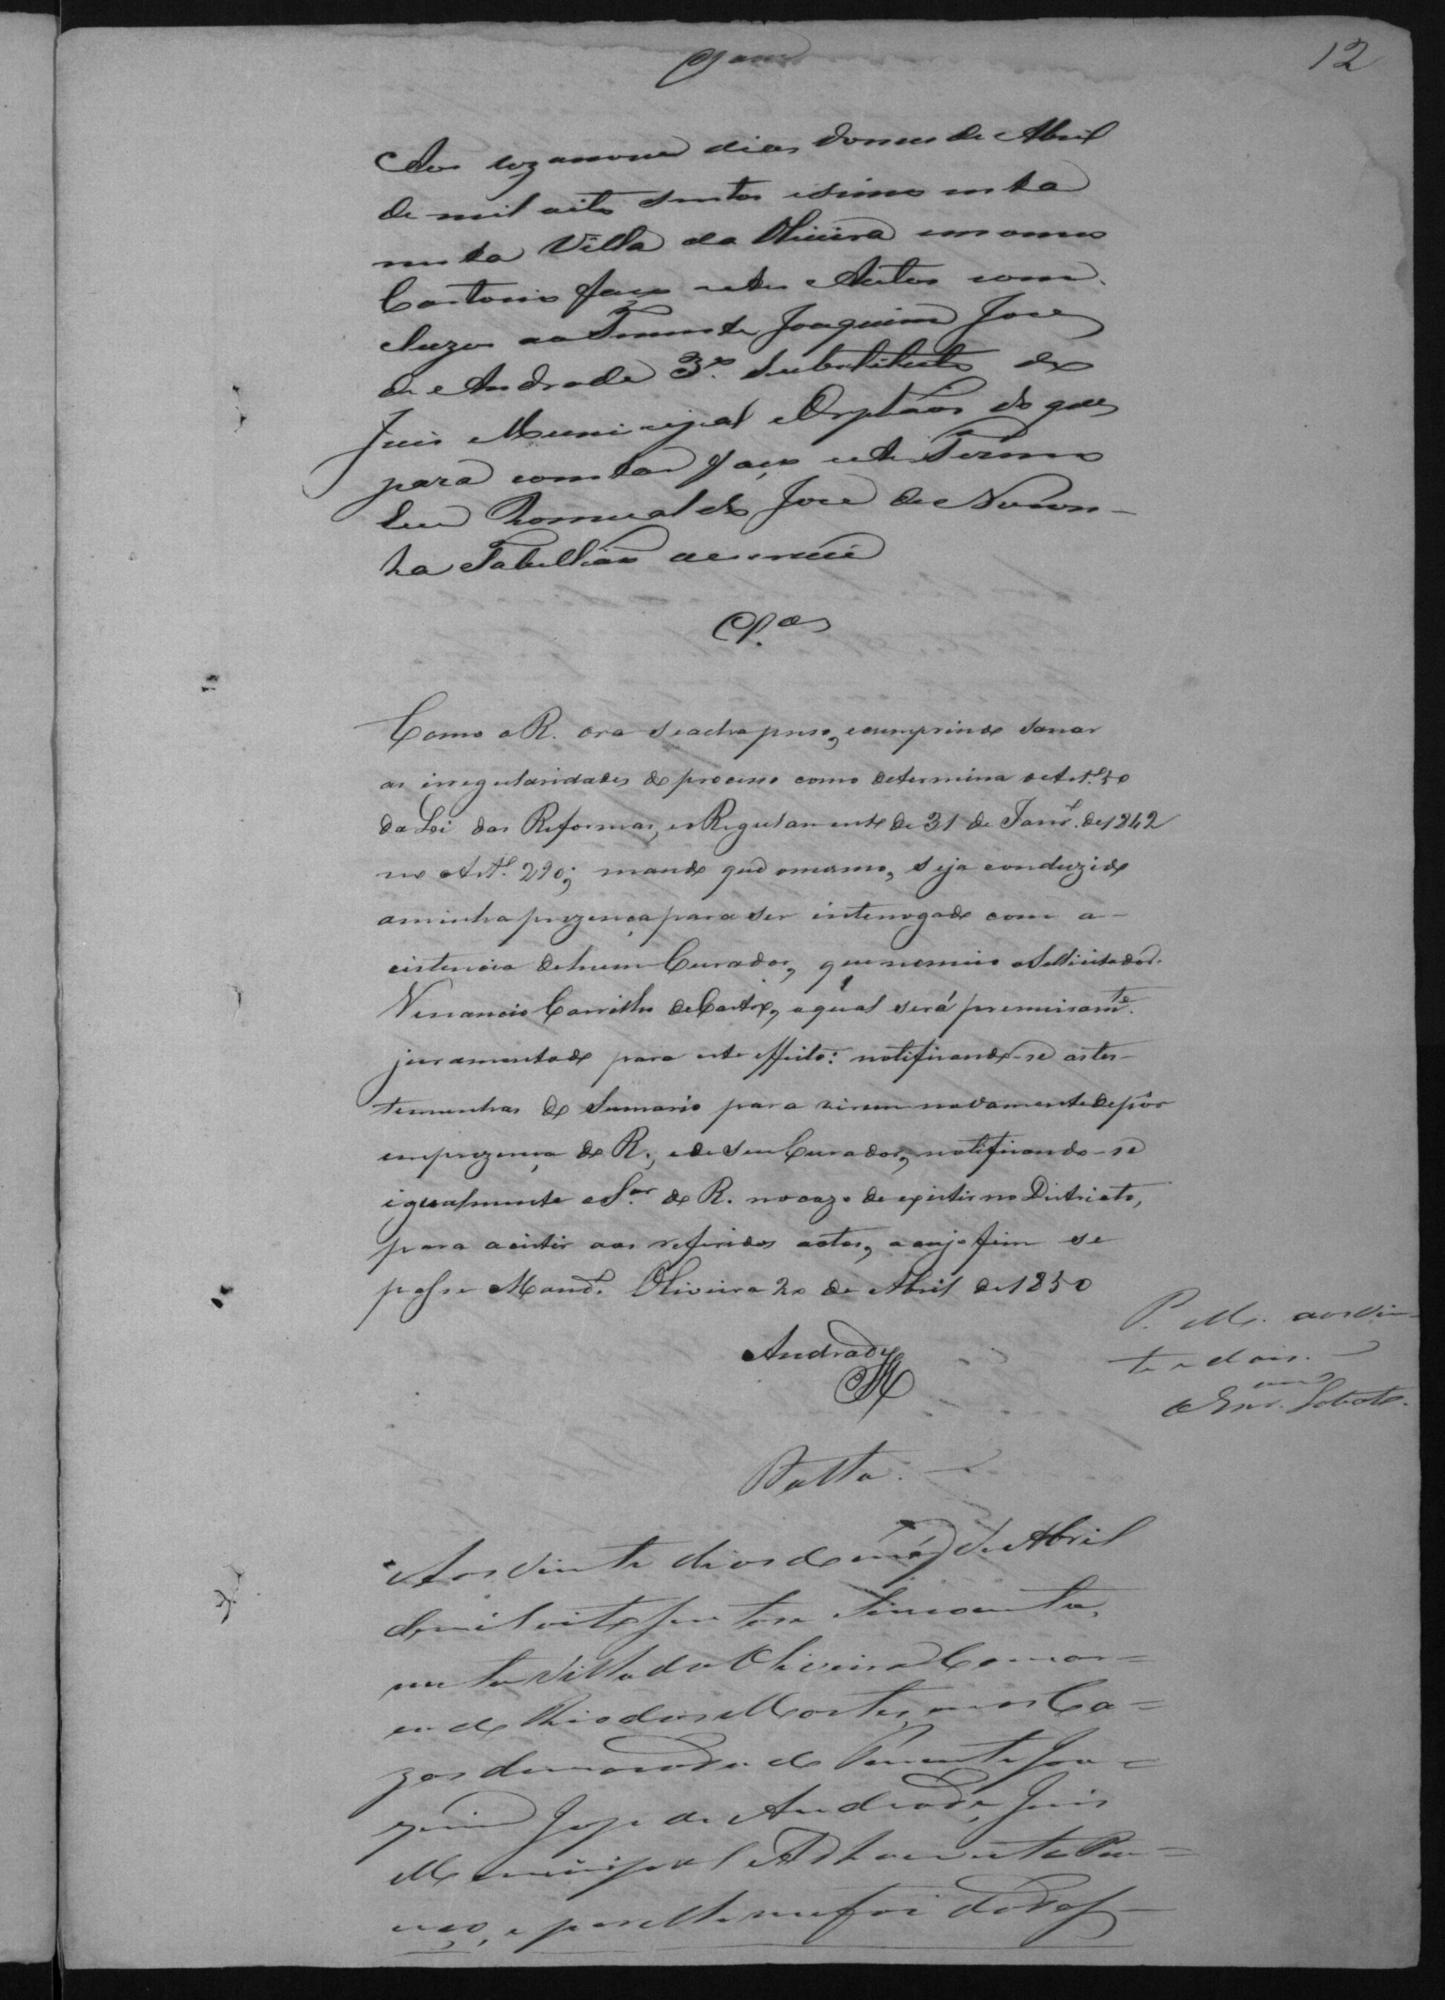 12
Aos dezanove dias do mes de Abril
de mil oito sentos e sincoenta
nesta Villa da Oliveira em meu
Cartorio faço estes Autos com
cluzos ao Tenente Joaquim Jose
de Andrade 3.º Substituto do
Juis Municipal e Orphãos do que
para constar faço este Termo
Eu Romualdo Jose de Noron-
ha Tabellião que escrevi
Cl.os
Como o R. ora se acha prezo, e cumprindo sanar
as irregularidades do processo como determina o Art.º 50
da Lei das Reformas, e o Regulamento de 31 de Janr.º de 1842
no Art.º 290; mando que o mesmo, seja conduzido
a minha prezença para ser interrogado com a-
cistencia de hum Curador, que nomeio o Sollicitador
Venancio Carrilho de Castro, o qual será premeiram.te
juramentado para este effeito: notificando-se as tes-
temunhas do Sumario para virem novamente depôr
em prezença do R., e de seu Curador, notificando-se
igualmente o S.or do R. no cazo de existir no Districto,
para acistir aos referidos actos, a cujo fim se
passe Mand.º Oliveira 20 de Abril de 1850
Andrade
P. M. aos vin-
te e dois.
Lobato.
Datta.
Aos vinte dias do mês de Abril
de mil oito sentos e sincoenta,
nesta Villa da Oliveira Comar-
ca do Rio das Mortes, em as Ca-
zas de morada do Tenente Joa-
quim Jose de Andrade, Juis
Municipal
e por elle me foi dado